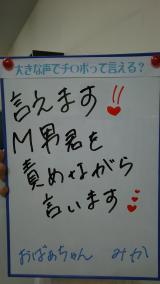 大きな声でチ○ポって言える？
言えます!!❤
M男君を
責めながら
言います❤❤
おばあちゃん　みか